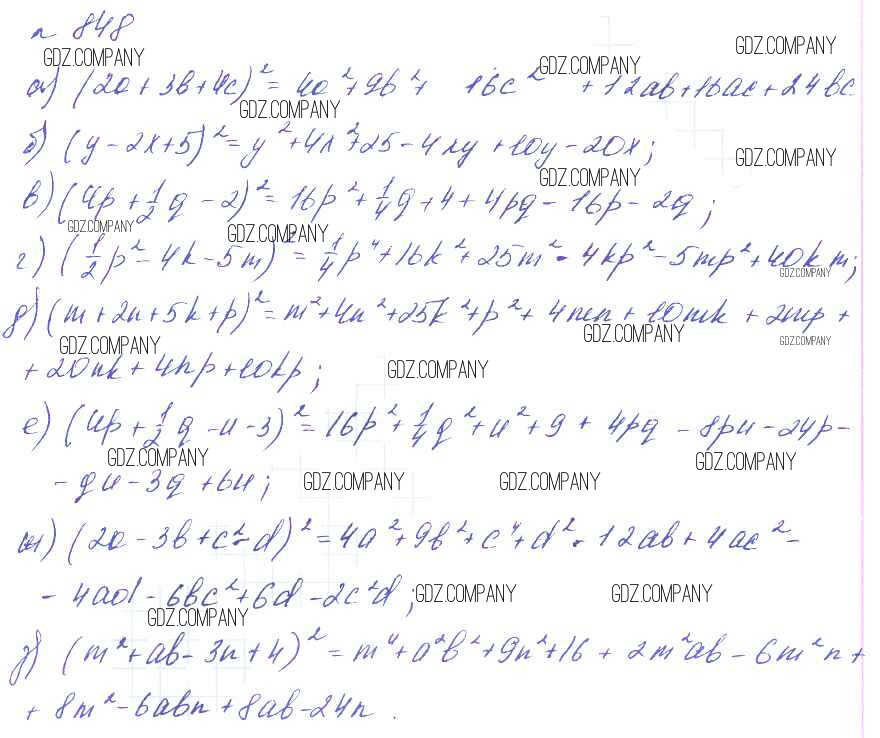 n 848
GDZ.COMPANY GDZ.COMPANY GDZ.COMPANY
а) (2a + 3b + 4c)² = 4a² + 9b² + 16c² + 12ab + 16ac + 24bc
GDZ.COMPANY
б) (y - 2x + 5)² = y² + 4x² + 25 - 4xy + 10y - 20x;
GDZ.COMPANY GDZ.COMPANY
в) (4p + 1/2 q - 2)² = 16p² + 1/4 q + 4 + 4pq - 16p - 2q;
GDZ.COMPANY GDZ.COMPANY
г) (1/2 p² - 4k - 5m)² = 1/4 p⁴ + 16k² + 25m² - 4kp² - 5mp² + 40km;
GDZ.COMPANY
д) (m + 2n + 5k + p)² = m² + 4n² + 25k² + p² + 4mn + 10mk + 2mp +
GDZ.COMPANY GDZ.COMPANY GDZ.COMPANY
+ 20nk + 4np + 10kp; GDZ.COMPANY
е) (4p + 1/2 q - u - 3)² = 16p² + 1/4 q² + u² + 9 + 4pq - 8pu - 24p -
GDZ.COMPANY GDZ.COMPANY
- qu - 3q + 6u; GDZ.COMPANY GDZ.COMPANY
ж) (2a - 3b + c² - d)² = 4a² + 9b² + c⁴ + d² - 12ab + 4ac² -
- 4ad - 6bc² + 6d - 2c²d; GDZ.COMPANY GDZ.COMPANY
GDZ.COMPANY
з) (m² + ab - 3n + 4)² = m⁴ + a²b² + 9n² + 16 + 2m²ab - 6m²n +
+ 8m² - 6abn + 8ab - 24n.